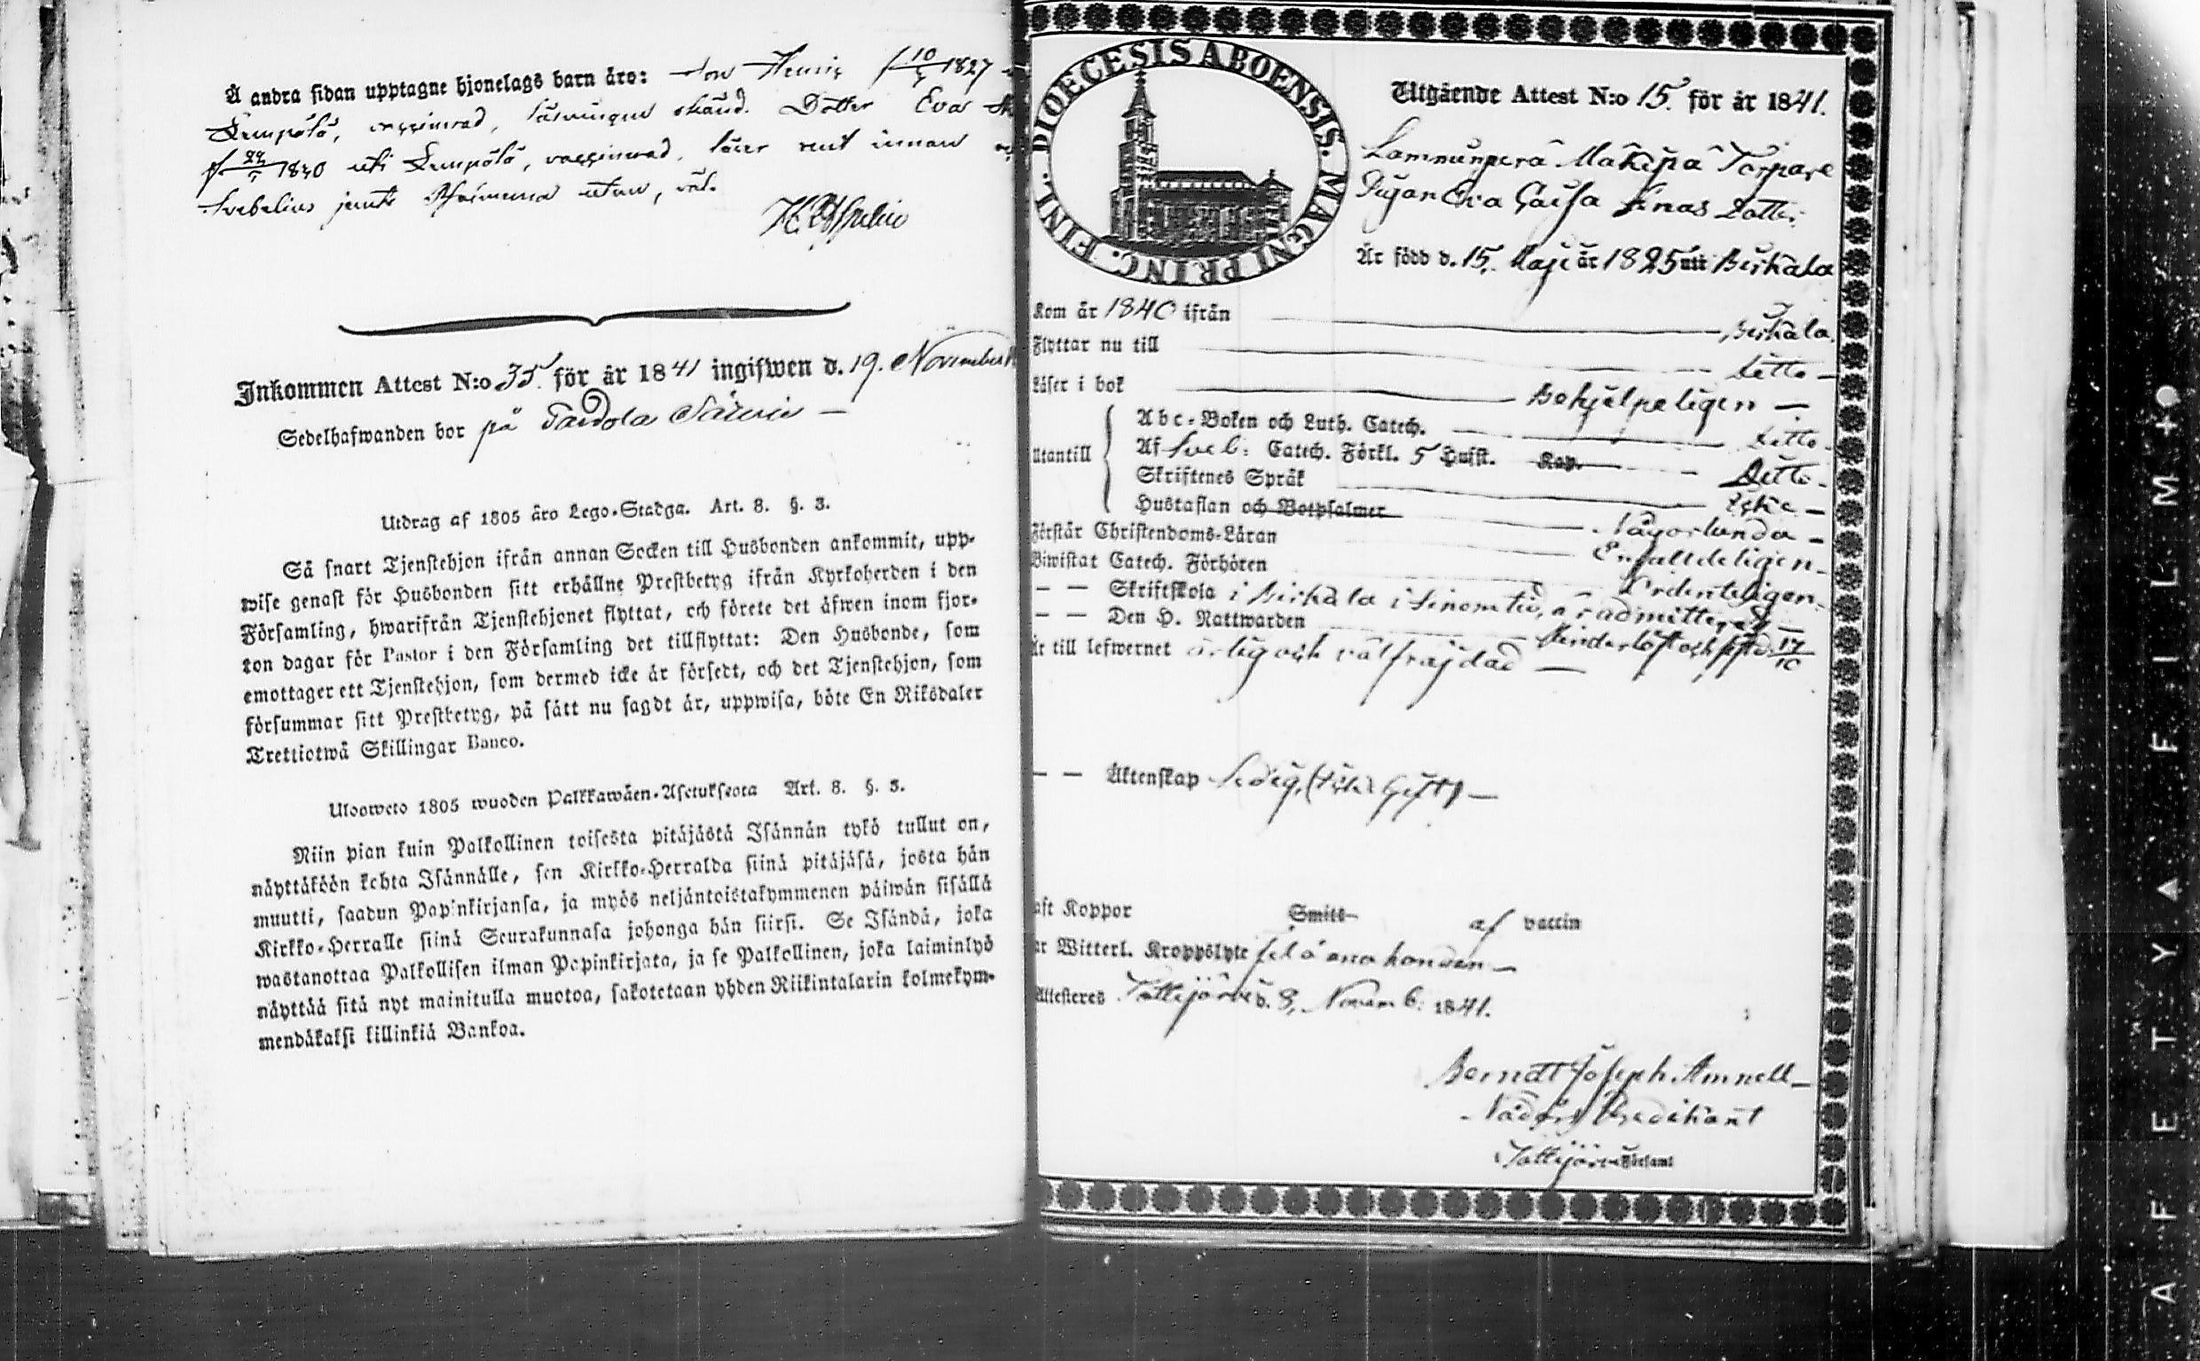 Å andra sidan upptagne hjonelags barn äro: Son Henric f 10/5 1827
Lempälä, vaccinerad, läsningen skäud. Dotter Eva
f 24/1 1840 uti Lempälä, vaccinerad, läser rent innan
Svebelius jemte utan, väl.
Inkommen Attest N:o 35. för år 1841 ingifwen d. 19. November
Sedelhafwanden bor på Taivola Säteri —
Utdrag af 1805 års Lego-Stadga. Art. 8. §. 3.
Så snart Tjenstehjon ifrån annan Socken till Husbonden ankommit, upp-
wise genast för Husbonden sitt erhållne Prestbetyg ifrån Kyrkoherden i den
Församling, hwarifrån Tjenstehjonet flyttat, och förete det äfwen inom fjor-
ton dagar för Pastor i den Församling det tillflyttat: Den Husbonde, som
emottager ett Tjenstehjon, som dermed icke är försedt, och det Tjenstehjon, som
försummar sitt Prestbetyg, på sätt nu sagdt är, uppwisa, böte En Riksdaler
Trettiotwå Skillingar Banco.
Ulosweto 1805 wuoden Palkkawäen-Asetuksesta Art. 8. §. 3.
Niin pian kuin Palkollinen toisesta pitäjästä Isännän tykö tullut on,
näyttäköön kohta Isännälle, sen Kirkko-Herralda siinä pitäjäsä, josta hän
muutti, saadun Papinkirjansa, ja myös neljäntoistakymmenen päiwän sisällä
Kirkko-Herralle siinä Seurakunnasa johonga hän siirsi. Se Isändä, joka
wastanottaa Palkollisen ilman Papinkirjata, ja se Palkollinen, joka laiminlyö
näyttää sitä nyt mainitulla muotoa, sakotetaan yhden Riikintalarin kolmekym-
mendäkaksi killinkiä Bankoa.
DIOECESIS ABOENSIS. MAGNI PRINC. FINL.
Utgående Attest N:o 15. för år 1841.
Lammunperä Mäkipä Torpare
Pigan Eva Caisa Enas Dotter
Är född d. 15. Maji år 1825 uti Birkala
Kom år 1840 ifrån Birkala.
Flyttar nu till ditto —
Läser i bok Behjelpeligen —
Utantill
Abc-Boken och Luth. Catech. ditto.
Af Sveb: Catech. Förkl. 5 Hufst. Kap. Ditto.
Skriftenes Språk Icke —
Hustaflan och Botpsalmer Någorlunda —
Förstår Christendoms-Läran Enfalldeligen.
Biwistat Catech. Förhören Ordenteligen.
— — Skriftskola i Birkala i sinom tid, är admitterad —
— — Den H. Nattwarden Oinderlöst och sist d. 17/10
Är till lefwernet ärlig och välfräjdad —
— — Äktenskap Ledig, (icke Gift) —
Haft Koppor Smitt af vaccin
Har Witterl. Kroppslyte fel å ena handen —
Attesteres Töttijärvi d. 8, Novemb: 1841.
Berndt Joseph Amnell —
Nådårs Predikant
i Töttijärvi Församl
AFETYAFILM